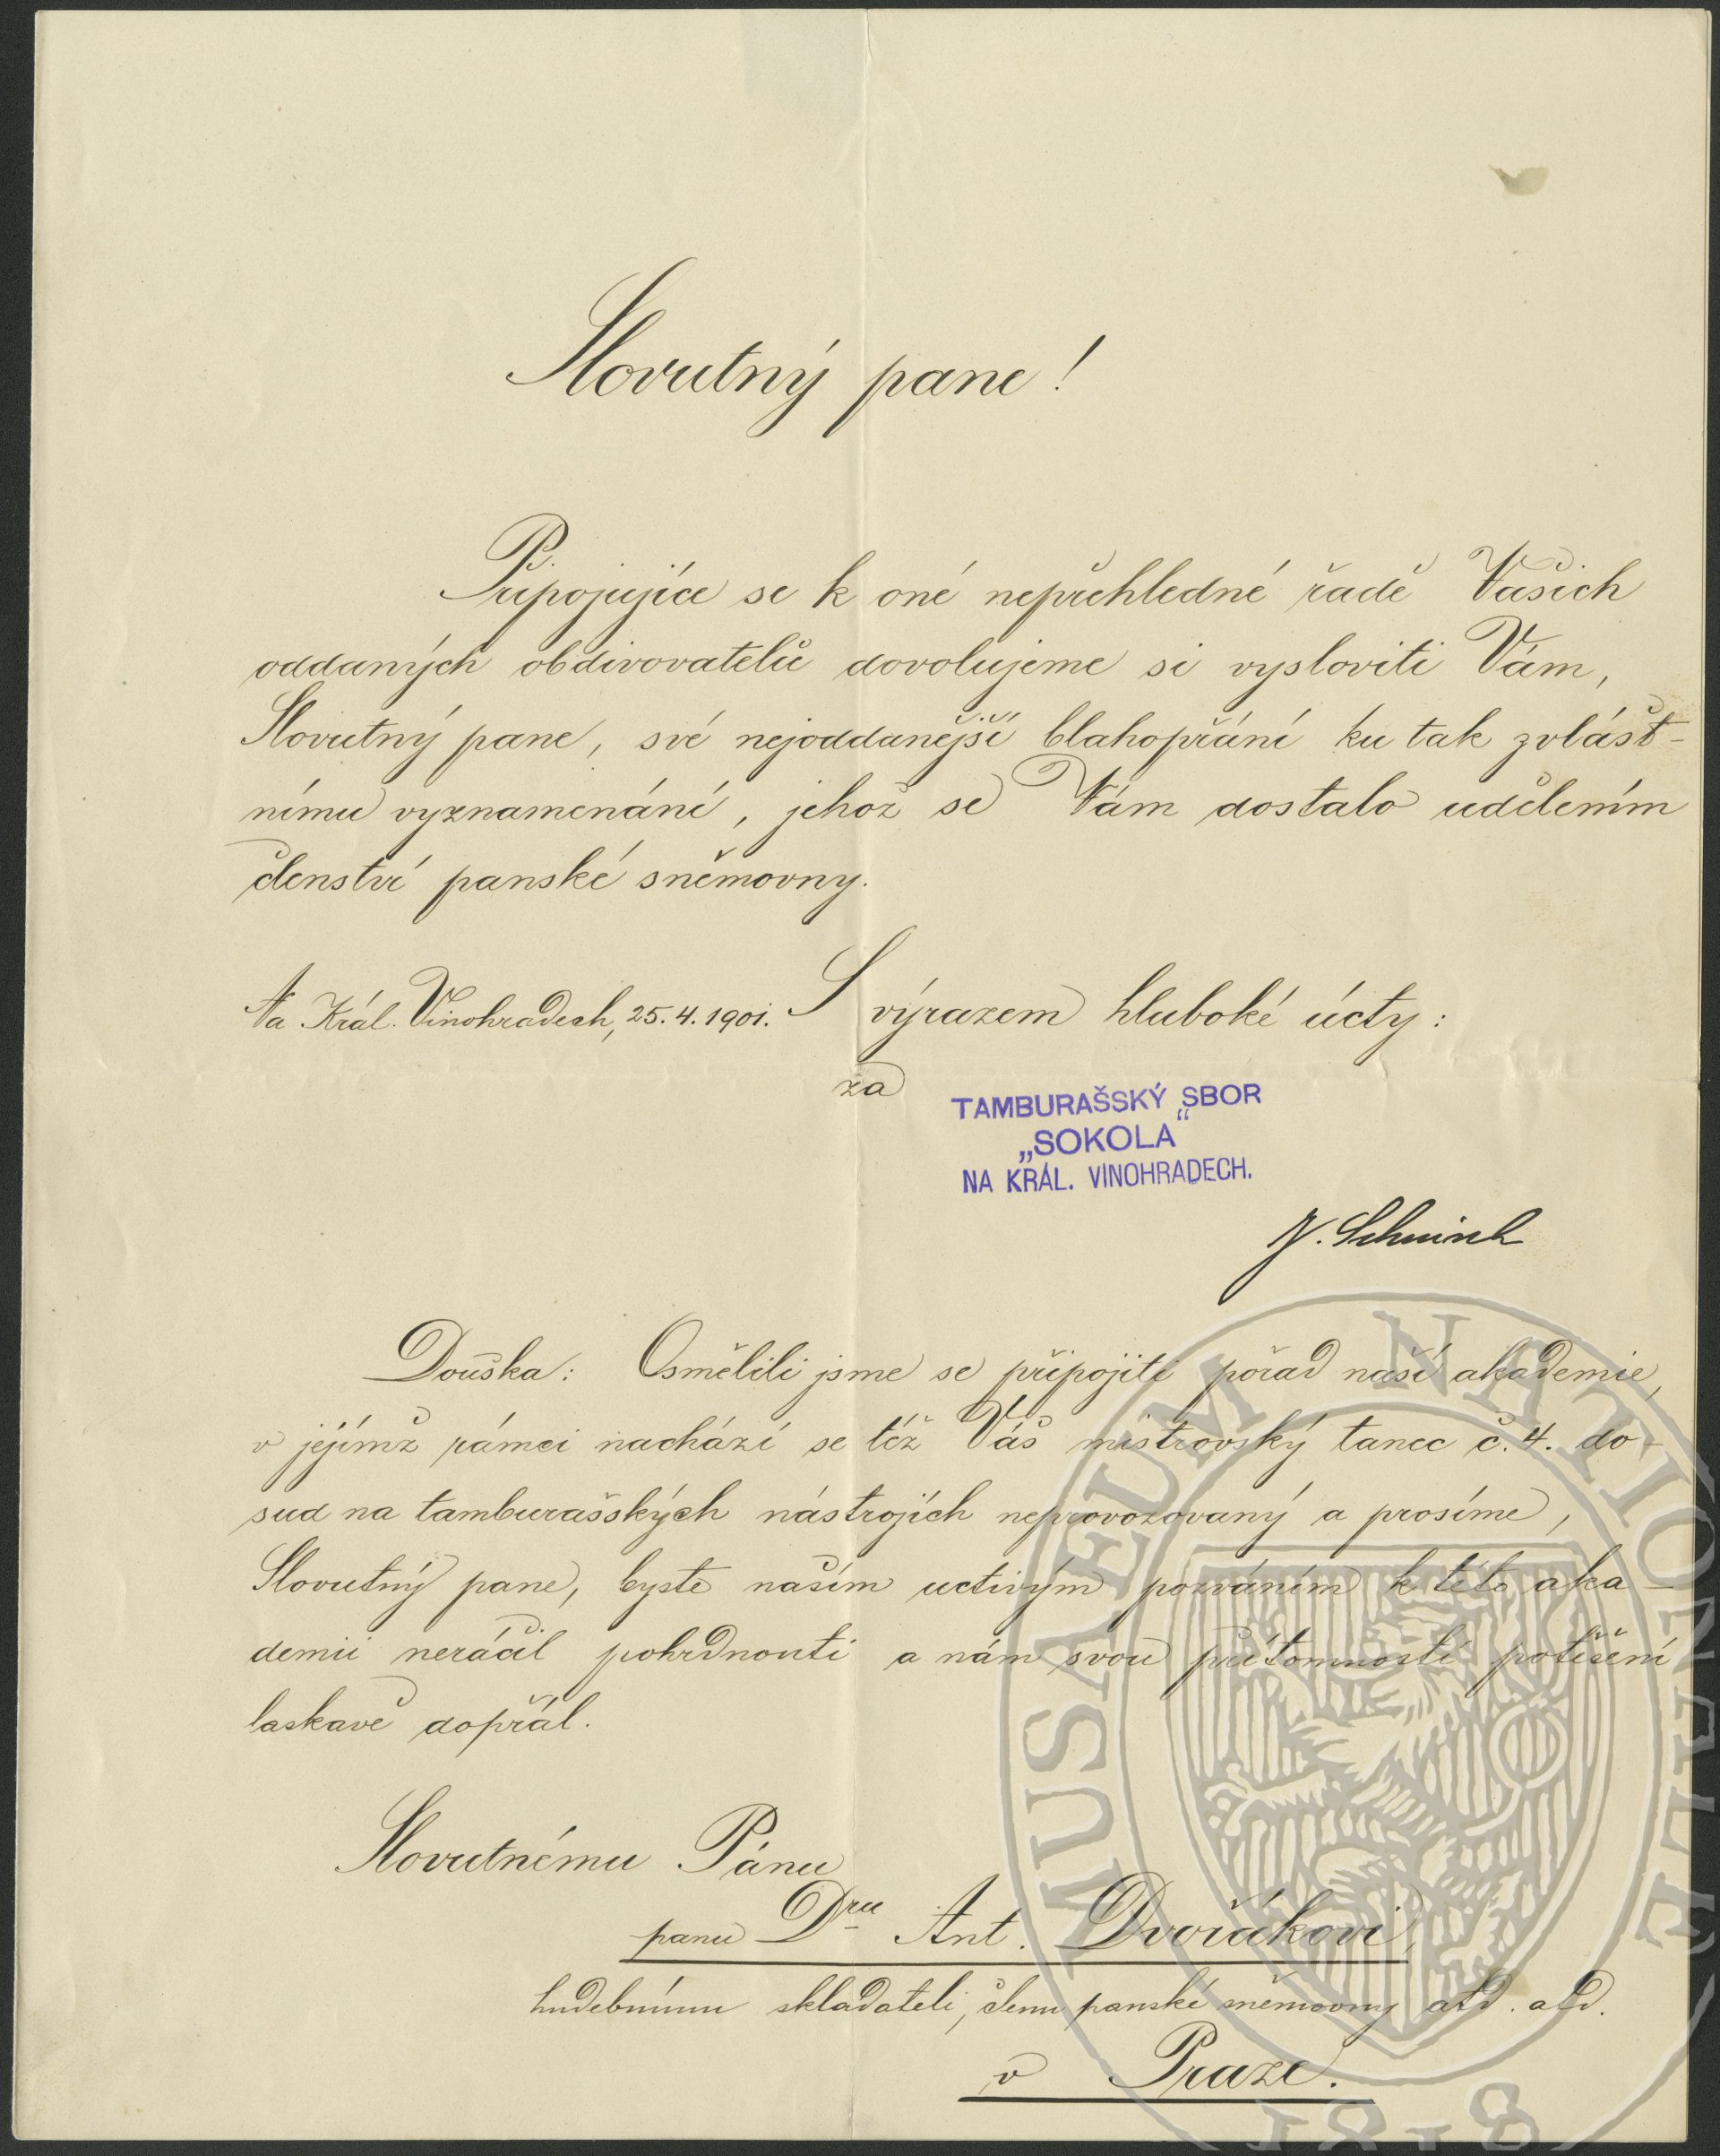 Slovutný pane!
Připojujíce se k oné nepřehledné řadě Vašich
oddaných obdivovatelů dovolujeme si vysloviti Vám,
Slovutný pane, své nejoddanější blahopřání ku tak zvlášt-
nímu vyznamenání, jehož se Vám dostalo udělením
členství panské sněmovny.
Na Král. Vinohradech, 25.4.1901. S výrazem hluboké úcty:
za
TAMBURAŠSKÝ SBOR
„SOKOLA“
NA KRÁL. VINOHRADECH.
Douška: Osmělili jsme se připojiti pořad naší akademie,
v jejímž rámci nachází se též Váš mistrovský tanec č. 4. do-
sud na tamburašských nástrojích neprovozovaný a prosíme,
Slovutný pane, byste naším uctivým pozváním k této aka-
demii neráčil pohrdnouti a nám svou přítomností potěšení
laskavě dopřál.
Slovutnému Pánu
panu Dru Ant. Dvořákovi,
hudebnímu skladateli, členu panské sněmovny atd. atd.
v Praze.
MUSAEUM NATIONALE
1818